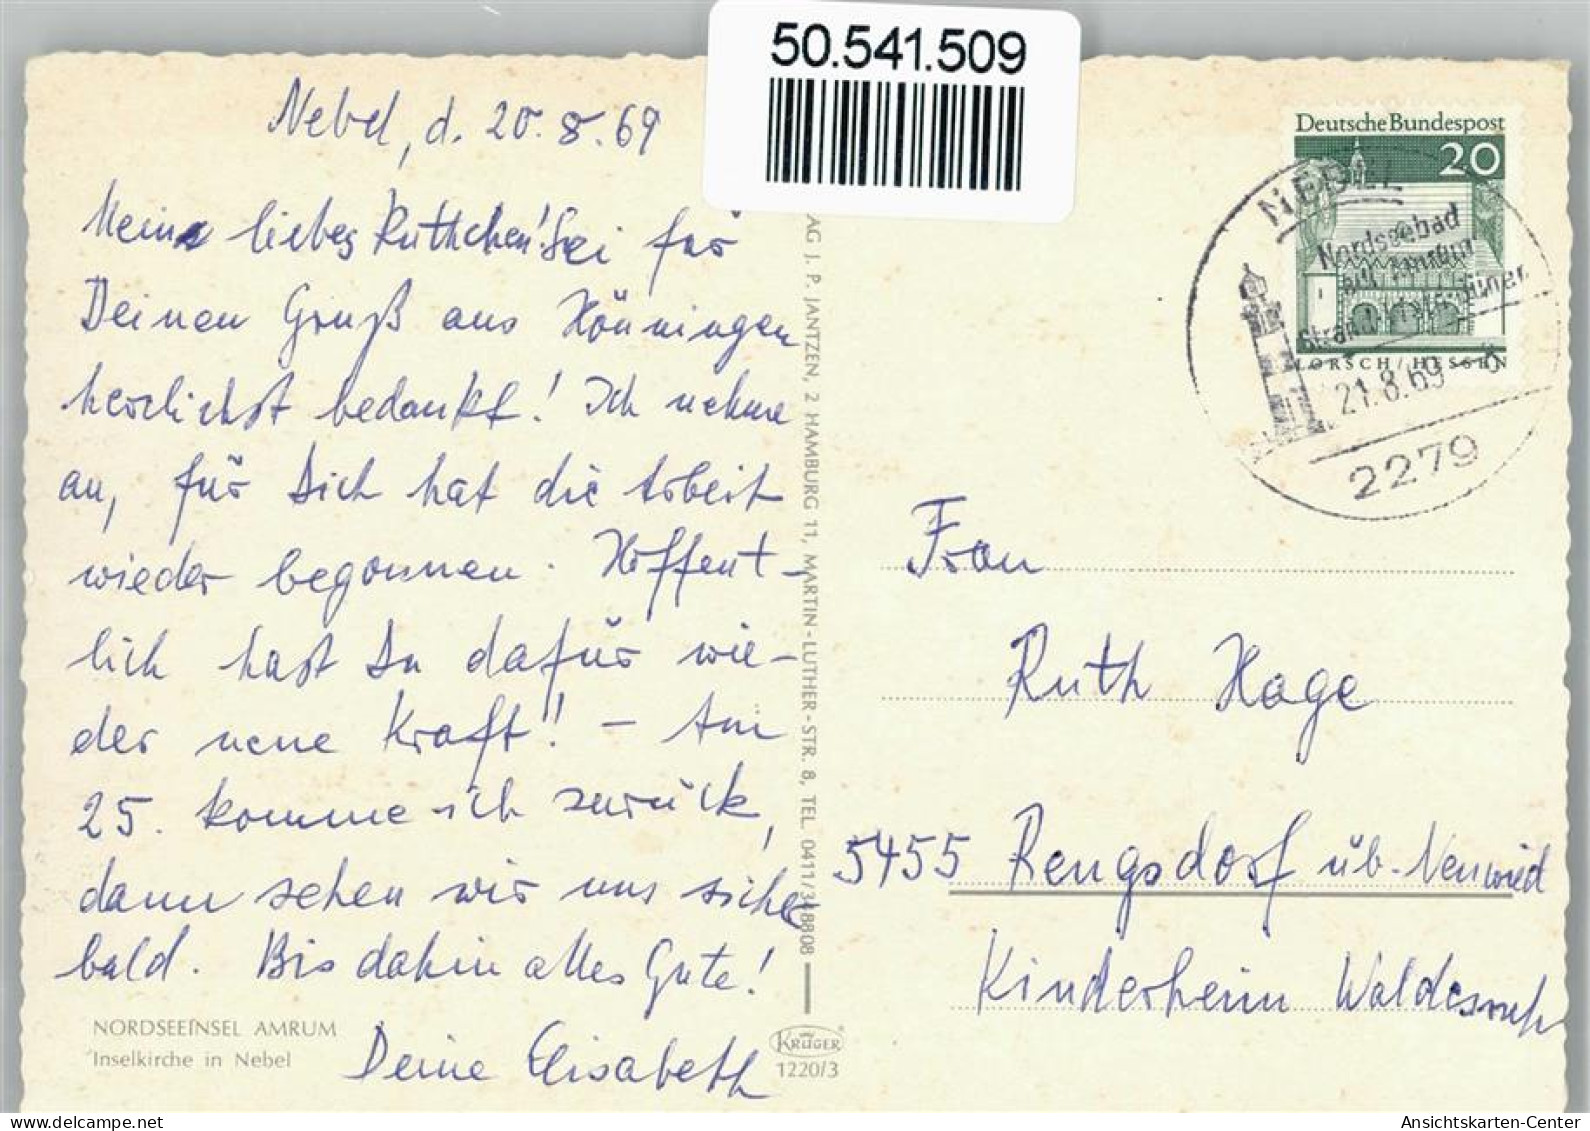 50.541.509
Nebel, d. 20.8.69
Mein liebes Ruthchen! Sei für
Deinen Gruß aus Hönningen
herzlichst bedankt! Ich nehme
an, für Dich hat die Arbeit
wieder begonnen. Hoffent-
lich hast Du dafür wie-
der neue Kraft! – Am
25. komme ich zurück,
dann sehen wir uns sicher
bald. Bis dahin alles Gute!
Deine Elisabeth
NORDSEEINSEL AMRUM
Inselkirche in Nebel
AG J. P. JANTZEN, 2 HAMBURG 11, MARTIN-LUTHER-STR. 8, TEL. 0411/348808
KRÜGER
1220/3
Deutsche Bundespost
20
LORSCH/HESSEN
NEBEL
Nordseebad
auf Amrum
21.8.69
2279
Frau
Ruth Hage
5455 Rengsdorf üb. Neuwied
Kinderheim Waldesruh
delcampe.net
Ansichtskarten-Center